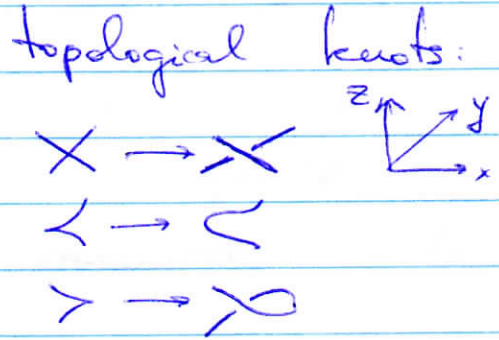 topological knots:
z y
x